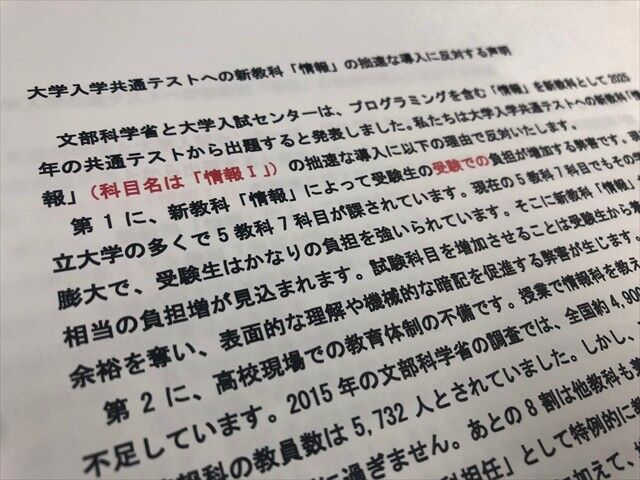 大学入学共通テストへの新教科「情報」の拙速な導入に反対する声明
文部科学省と大学入試センターは、プログラミングを含む「情報」を新教科として2025
年の共通テストから出題すると発表しました。私たちは大学入学共通テストへの新教科「情
報」（科目名は「情報Ⅰ」）の拙速な導入に以下の理由で反対いたします。
第1に、新教科「情報」によって受験生の受験での負担が増加する弊害です。
立大学の多くで5教科7科目が課されています。現在の5教科7科目でもその
膨大で、受験生はかなりの負担を強いられています。そこに新教科「情報」が
相当の負担増が見込まれます。試験科目を増加させることは受験生から
余裕を奪い、表面的な理解や機械的な暗記を促進する弊害が生じます。
第2に、高校現場での教育体制の不備です。授業で情報科を教え
不足しています。2015年の文部科学省の調査では、全国約4,900
報科の教員数は5,732人とされていました。しかし、
に過ぎません。あとの8割は他教科も
担任」として特例的に
加えて、